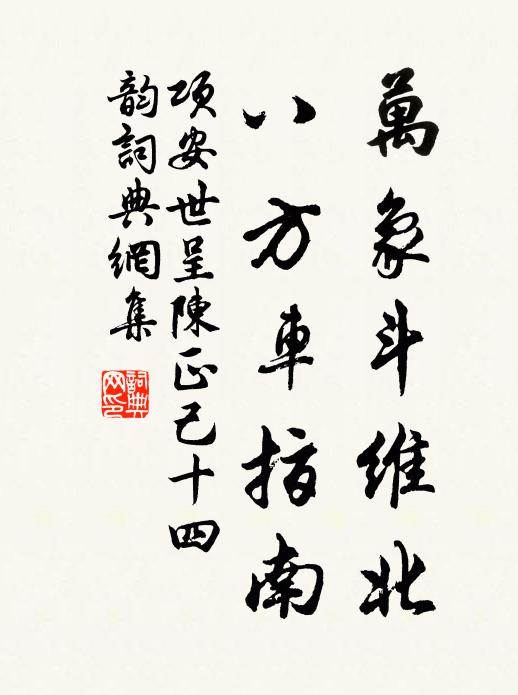 萬象斗維北
八方車指南
項安世呈陳正己十四
韵詞典網集
詞典
网印